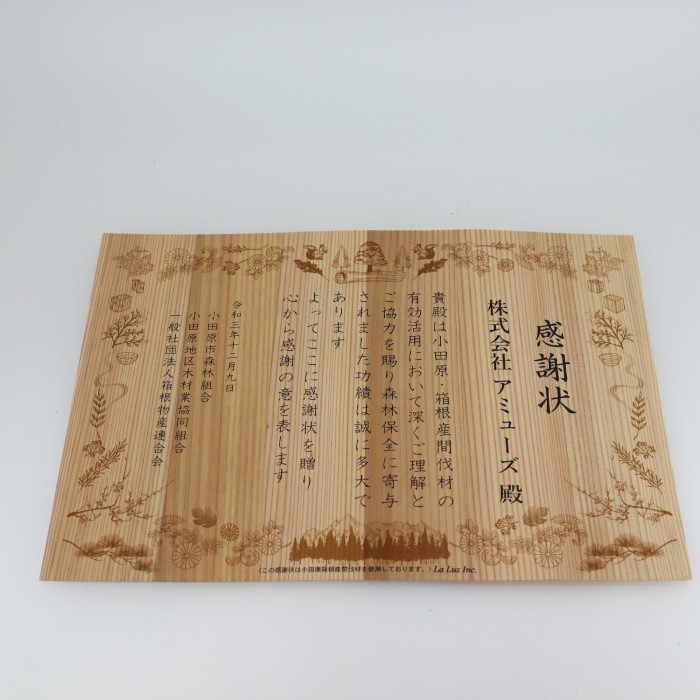 感謝状
株式会社 アミューズ 殿
貴殿は小田原・箱根産間伐材の
有効活用において深くご理解と
ご協力を賜り森林保全に寄与
されました功績は誠に多大で
あります
よってここに感謝状を贈り
心から感謝の意を表します
令和三年十二月九日
小田原市森林組合
小田原地区木材業協同組合
一般社団法人箱根物産連合会
（この感謝状は小田原箱根産間伐材を使用しております。）La Luz Inc.